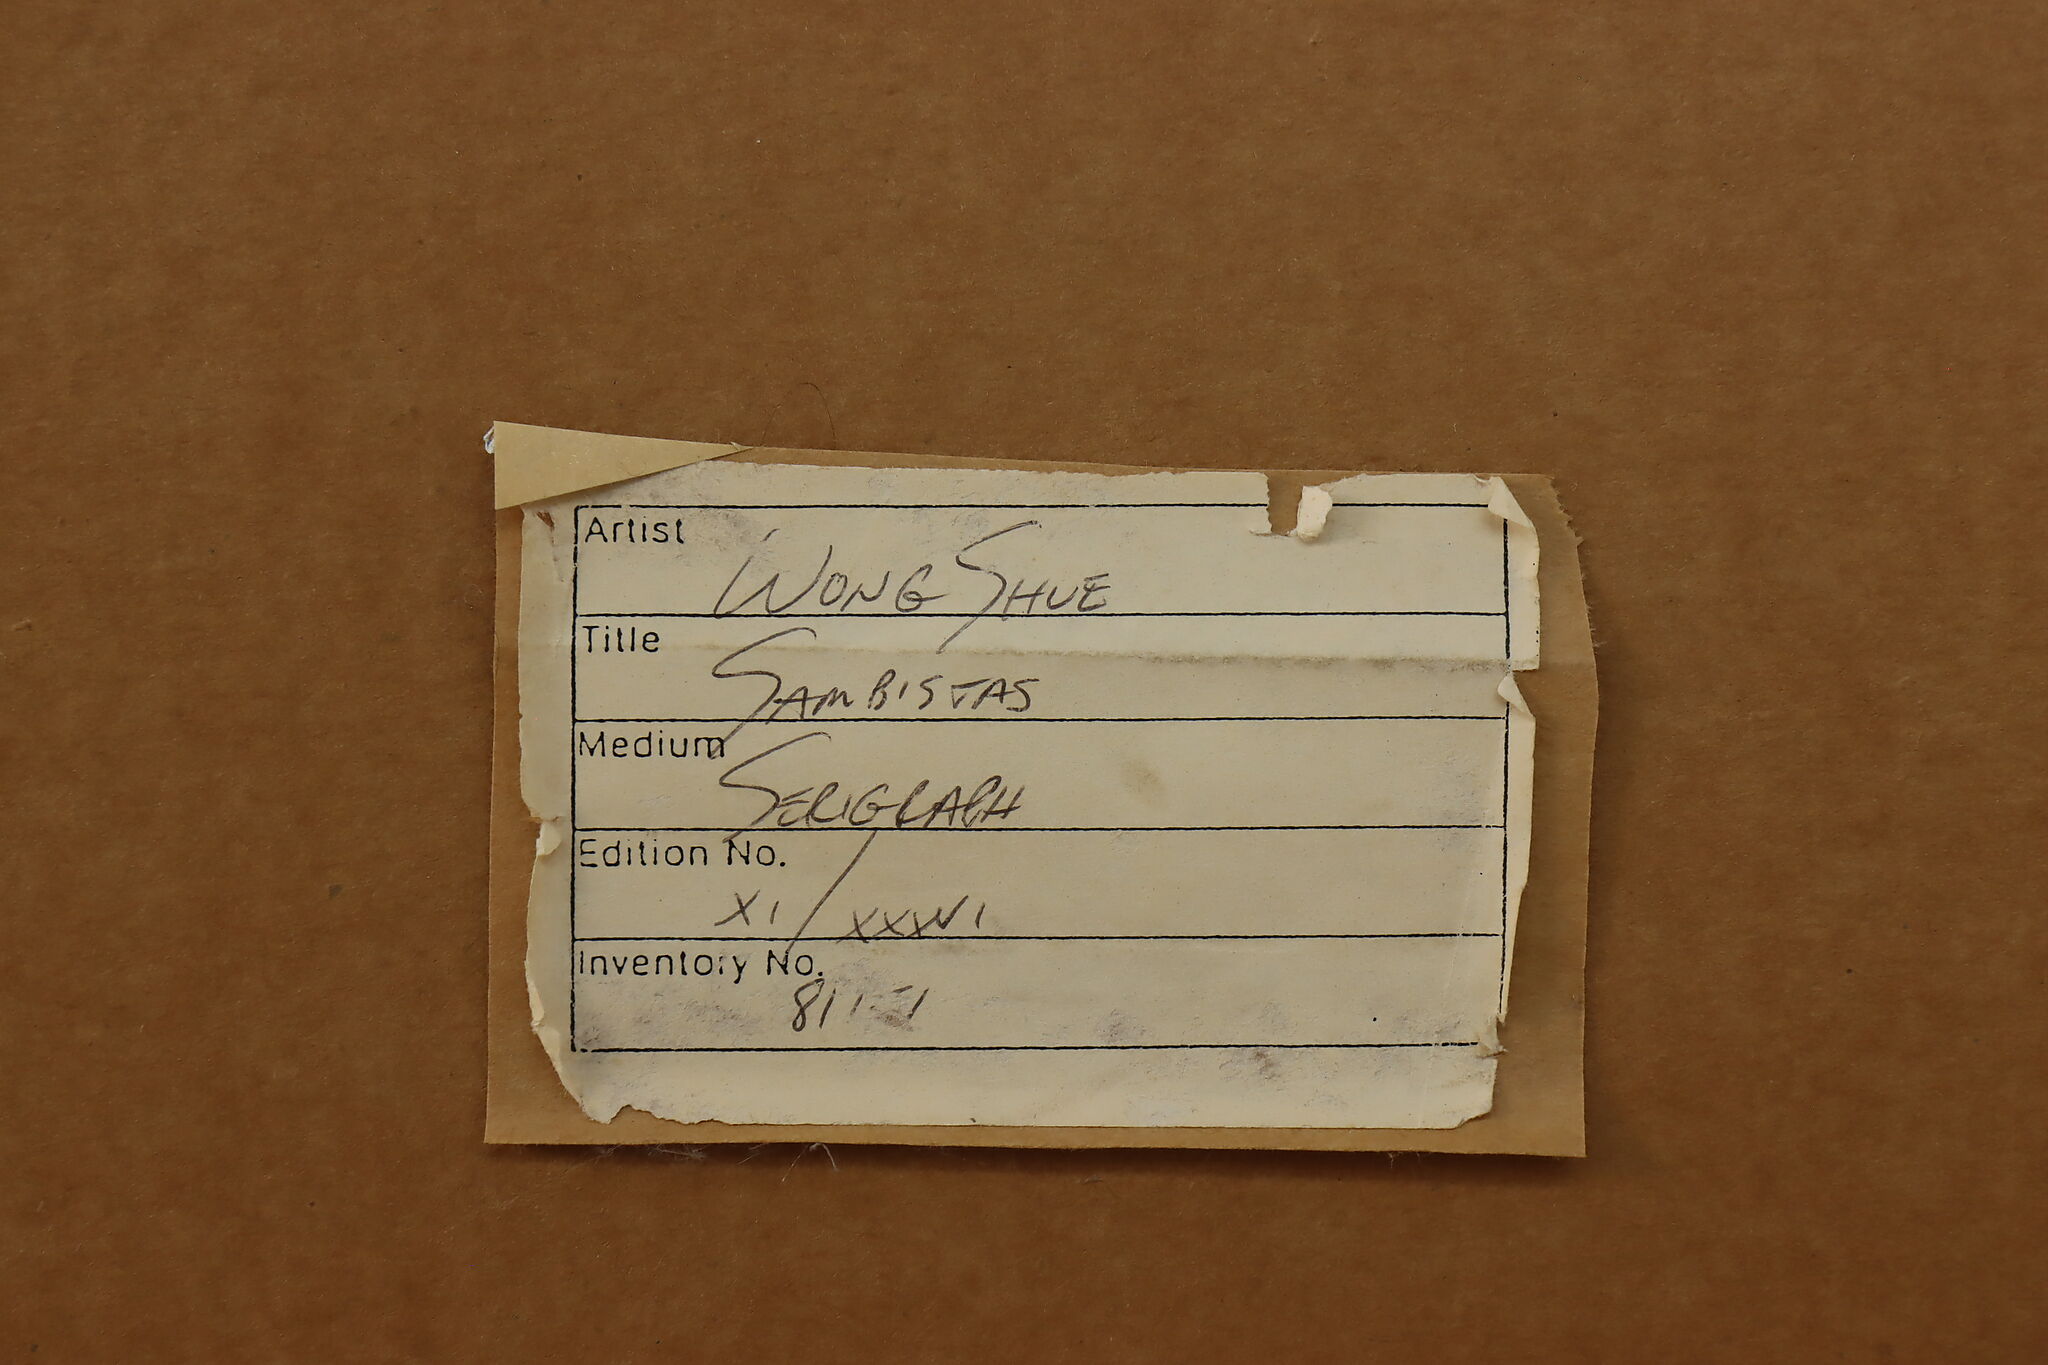 Artist
WONG SHUE
Title
SAMBISTAS
Medium
SERIGRAPH
Edition No.
XI / XXXVI
Inventory No.
811-1